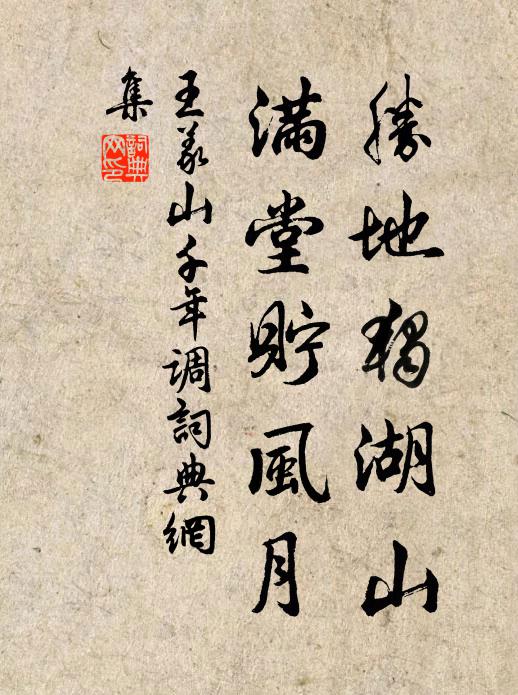 勝地獨湖山
滿堂貯風月
王義山千年調詞典網
集
詞典
網印